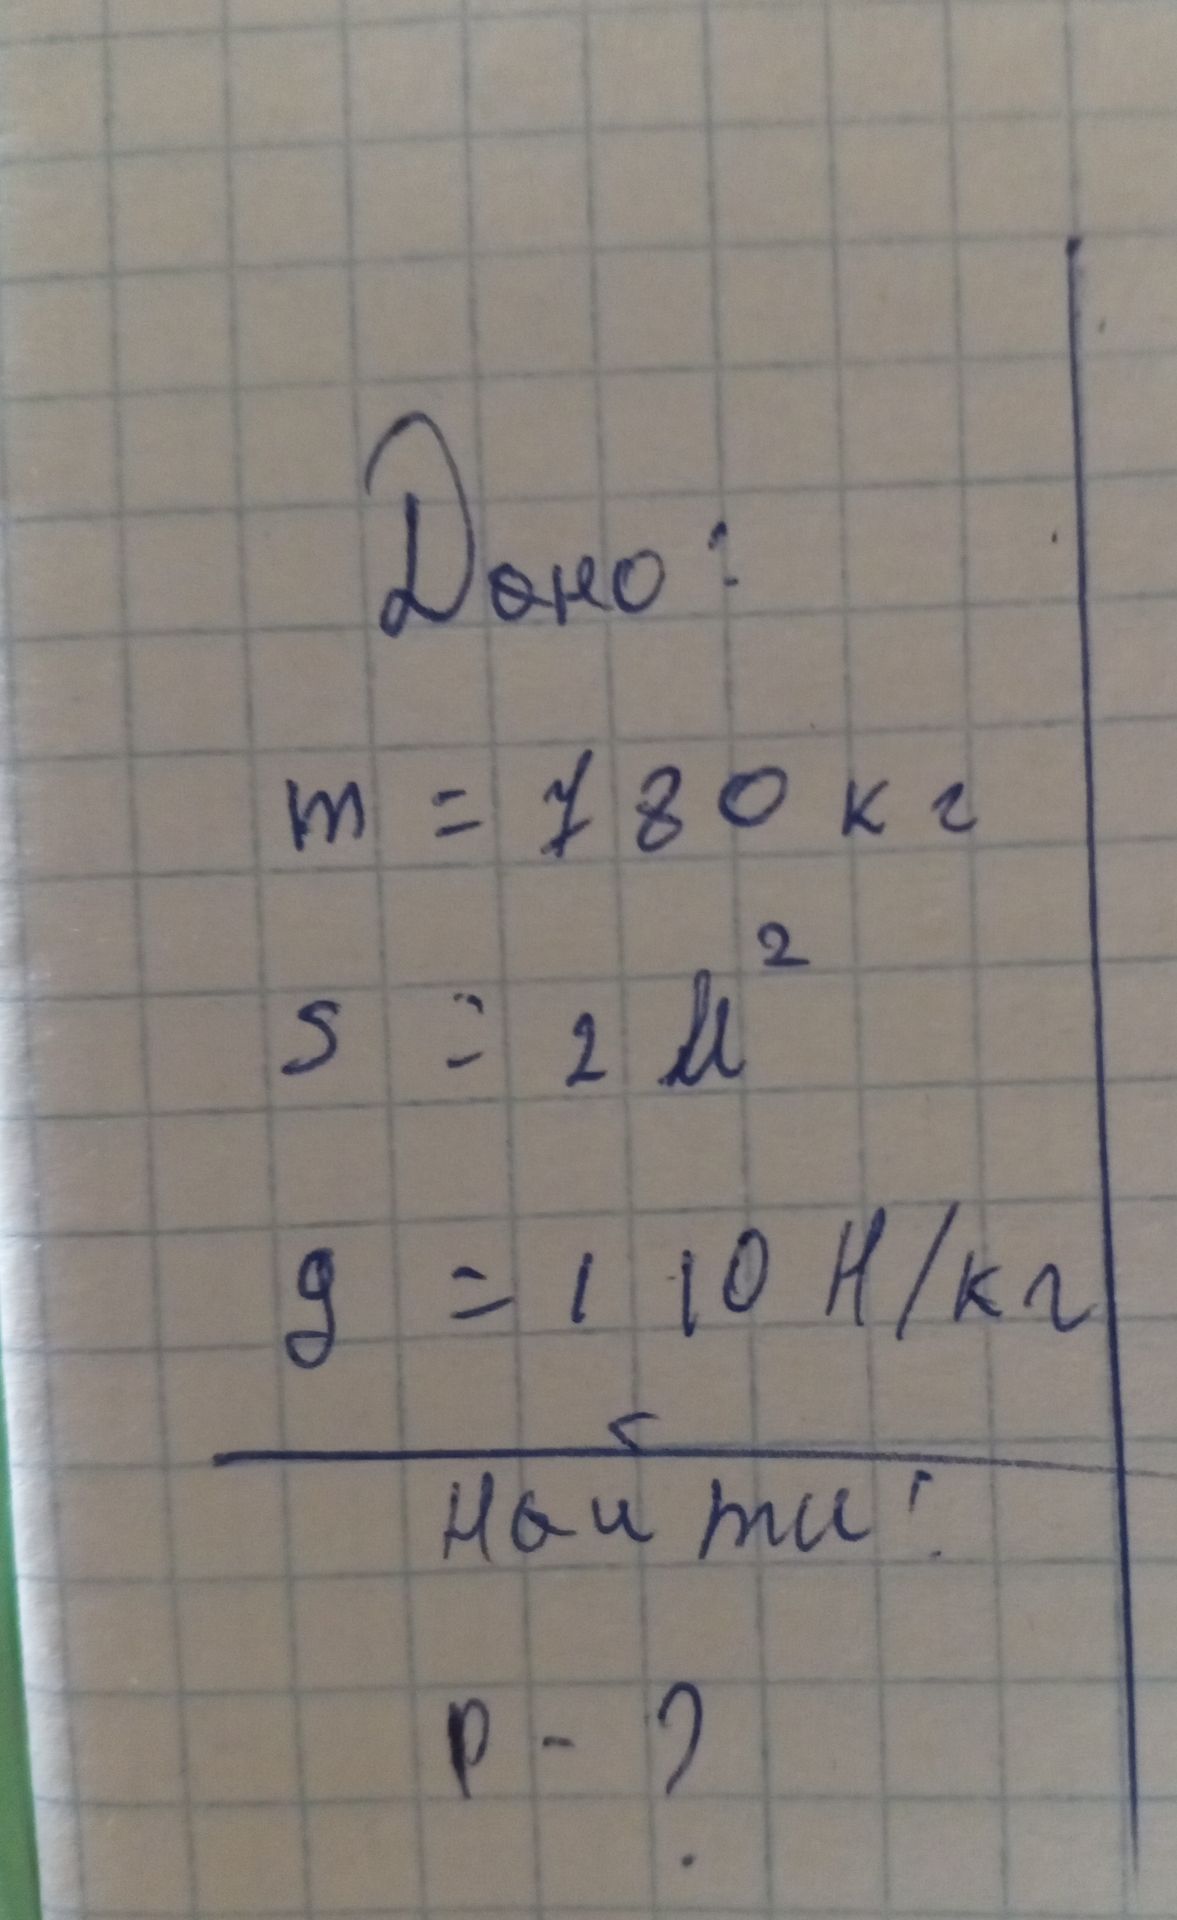 Дано:
m = 780 кг
S = 2 м²
g = 110 Н/кг
Найти:
p - ?